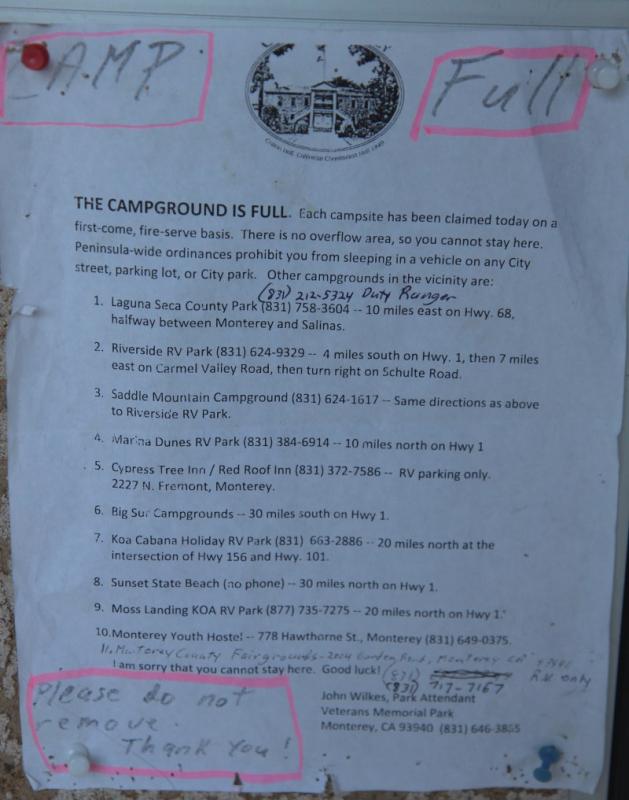 CAMP
Full
Colton Hall, California Constitution Hall, 1849
THE CAMPGROUND IS FULL. Each campsite has been claimed today on a
first-come, fire-serve basis. There is no overflow area, so you cannot stay here.
Peninsula-wide ordinances prohibit you from sleeping in a vehicle on any City
street, parking lot, or City park. Other campgrounds in the vicinity are:
(831) 212-5324 Duty Ranger
1. Laguna Seca County Park (831) 758-3604 -- 10 miles east on Hwy. 68,
halfway between Monterey and Salinas.
2. Riverside RV Park (831) 624-9329 -- 4 miles south on Hwy. 1, then 7 miles
east on Carmel Valley Road, then turn right on Schulte Road.
3. Saddle Mountain Campground (831) 624-1617 -- Same directions as above
to Riverside RV Park.
4. Marina Dunes RV Park (831) 384-6914 -- 10 miles north on Hwy 1
5. Cypress Tree Inn / Red Roof Inn (831) 372-7586 -- RV parking only.
2227 N. Fremont, Monterey.
6. Big Sur Campgrounds -- 30 miles south on Hwy 1.
7. Koa Cabana Holiday RV Park (831) 663-2886 -- 20 miles north at the
intersection of Hwy 156 and Hwy. 101.
8. Sunset State Beach (no phone) -- 30 miles north on Hwy 1.
9. Moss Landing KOA RV Park (877) 735-7275 -- 20 miles north on Hwy 1.
10. Monterey Youth Hostel -- 778 Hawthorne St., Monterey (831) 649-0375.
11. Monterey County Fairgrounds - 2004 Road, Monterey CA
R.V. only
I am sorry that you cannot stay here. Good luck! (831)
(831) 717-7167
John Wilkes, Park Attendant
Veterans Memorial Park
Monterey, CA 93940 (831) 646-3865
Please do not
remove.
Thank You!